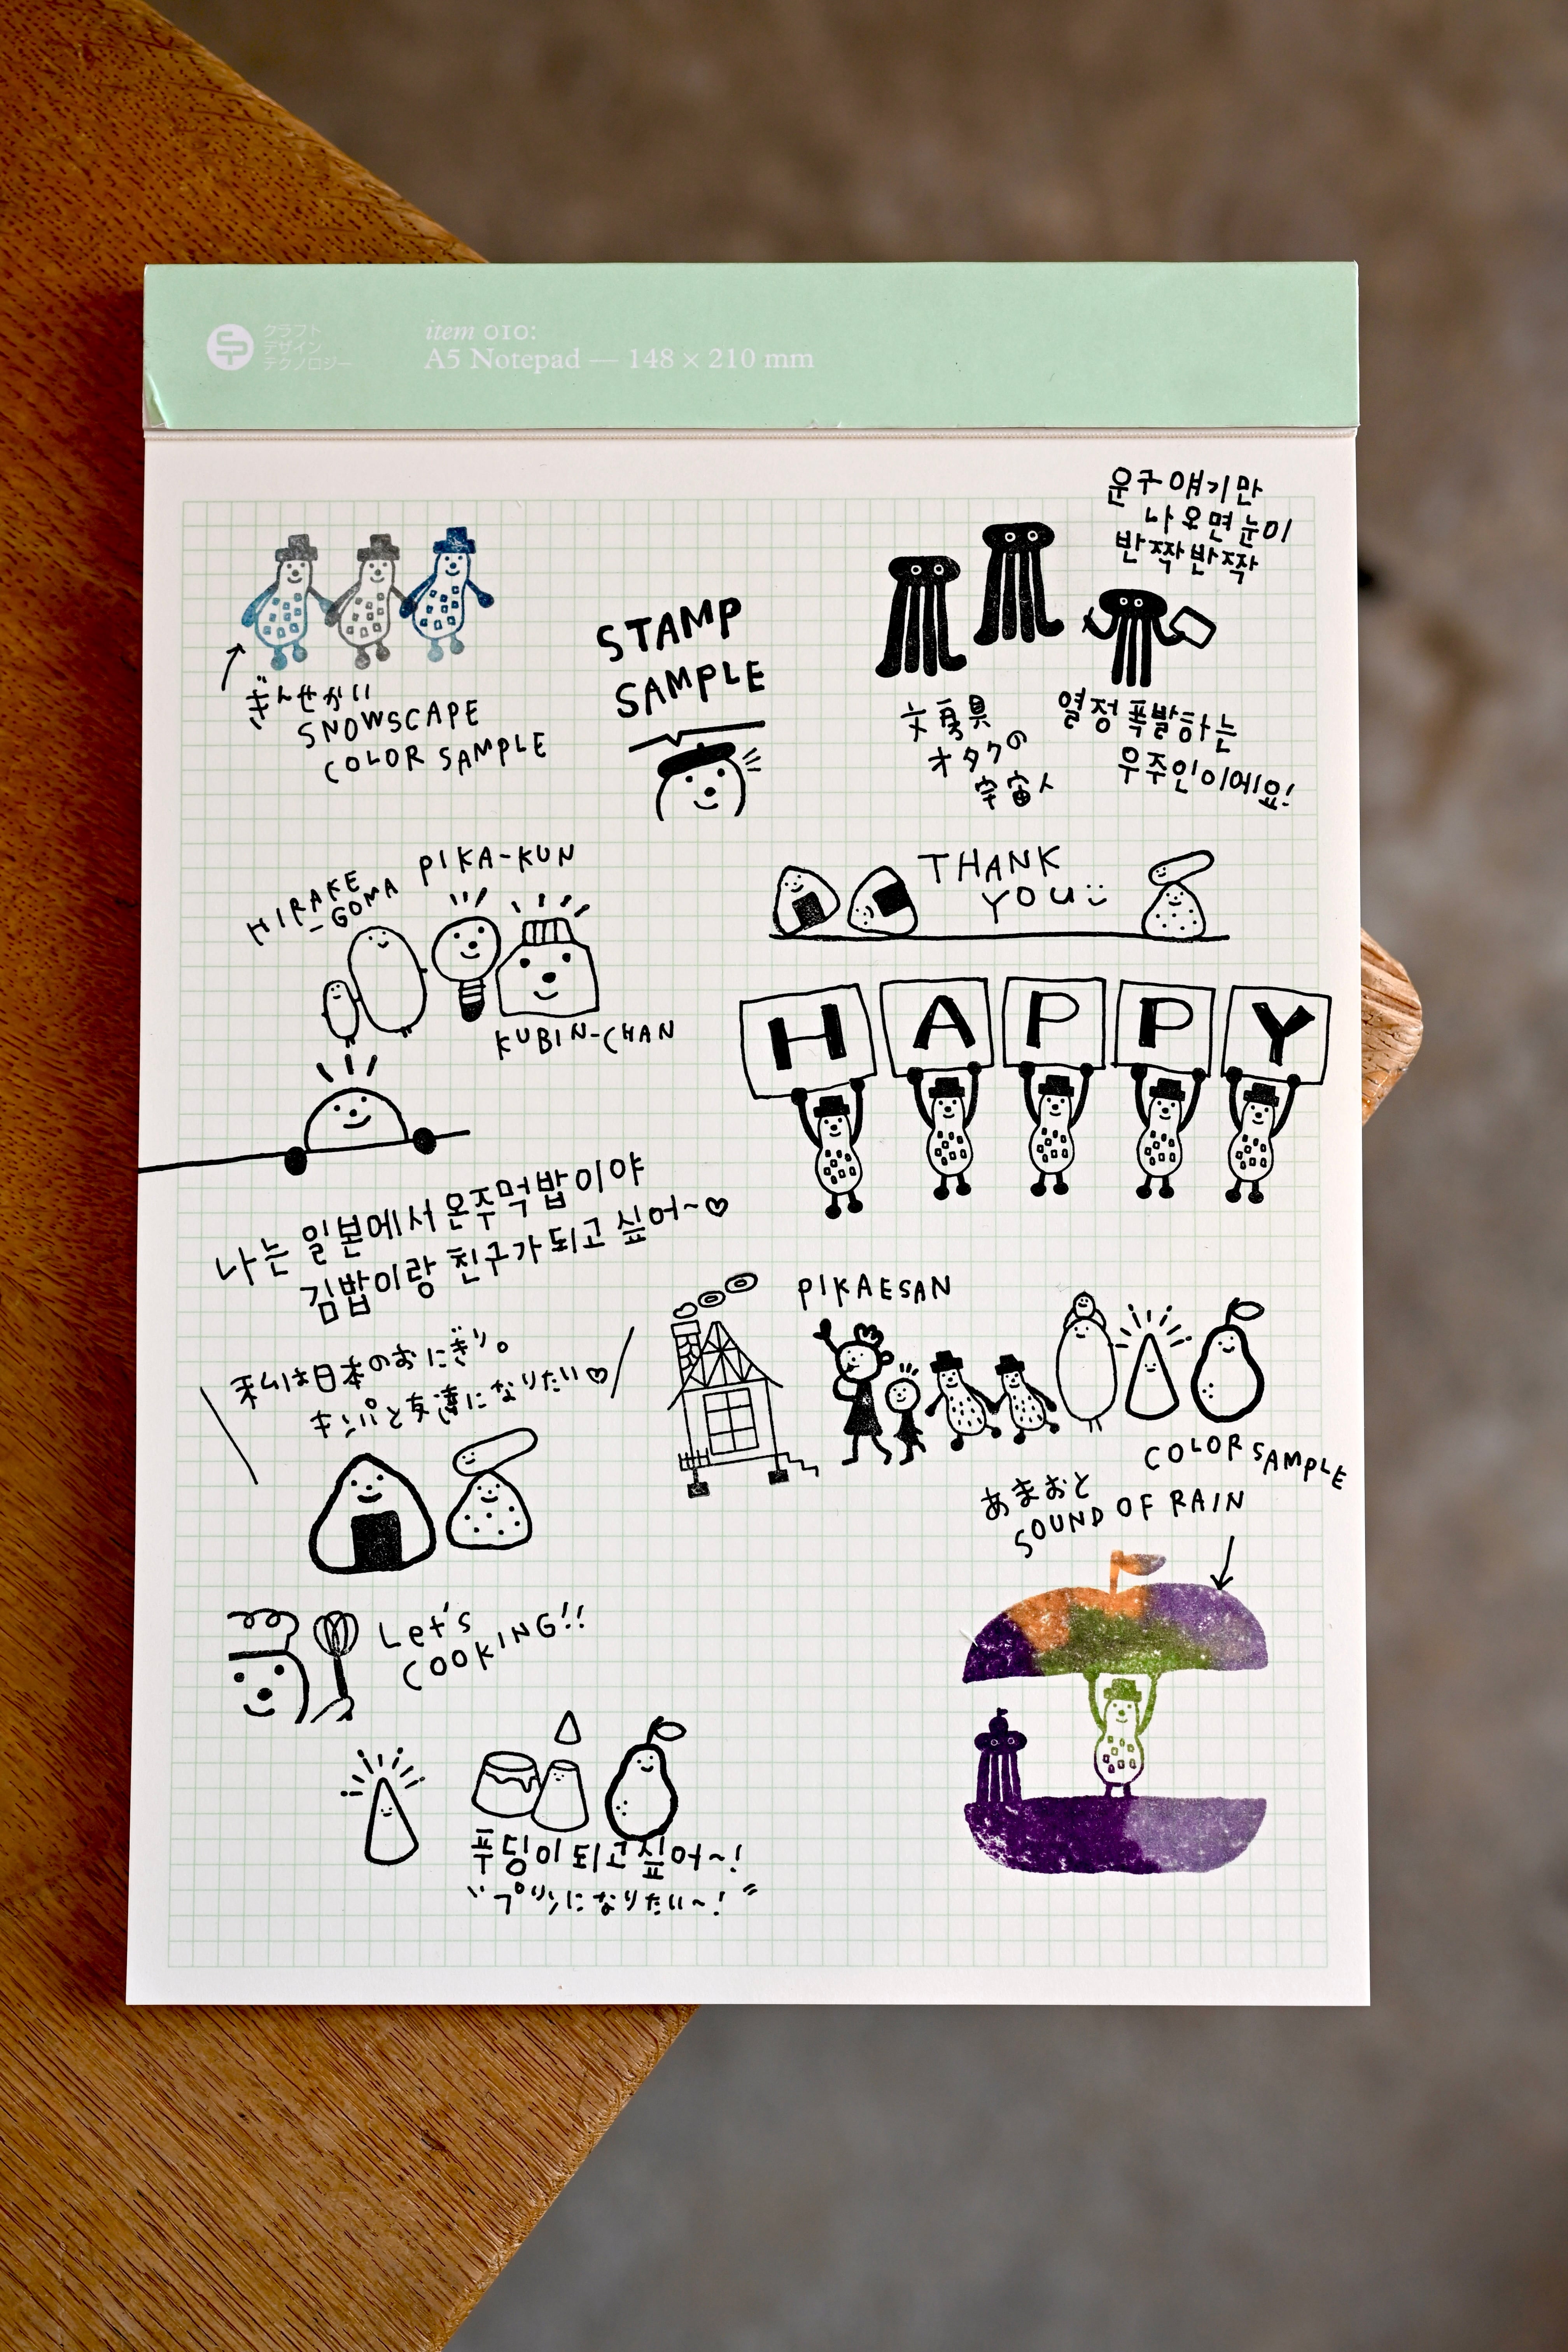 クラフト
デザイン
テクノロジー
item 010:
A5 Notepad — 148 × 210 mm
ぎんせかい
SNOWSCAPE
COLOR SAMPLE
STAMP
SAMPLE
문구 얘기만
나오면 눈이
반짝반짝
文房具
オタクの
宇宙人
열정 폭발하는
우주인이에요!
HIRAKE
-GOMA
PIKA-KUN
KUBIN-CHAN
THANK
YOU
HAPPY
나는 일본에서 온 주먹밥이야
김밥이랑 친구가 되고 싶어~♡
私は日本のおにぎり。
キンパと友達になりたい♡
PIKAESAN
COLOR SAMPLE
あまおと
SOUND OF RAIN
Let's
COOKING!!
푸딩이 되고 싶어~!
"プリンになりたい~!"